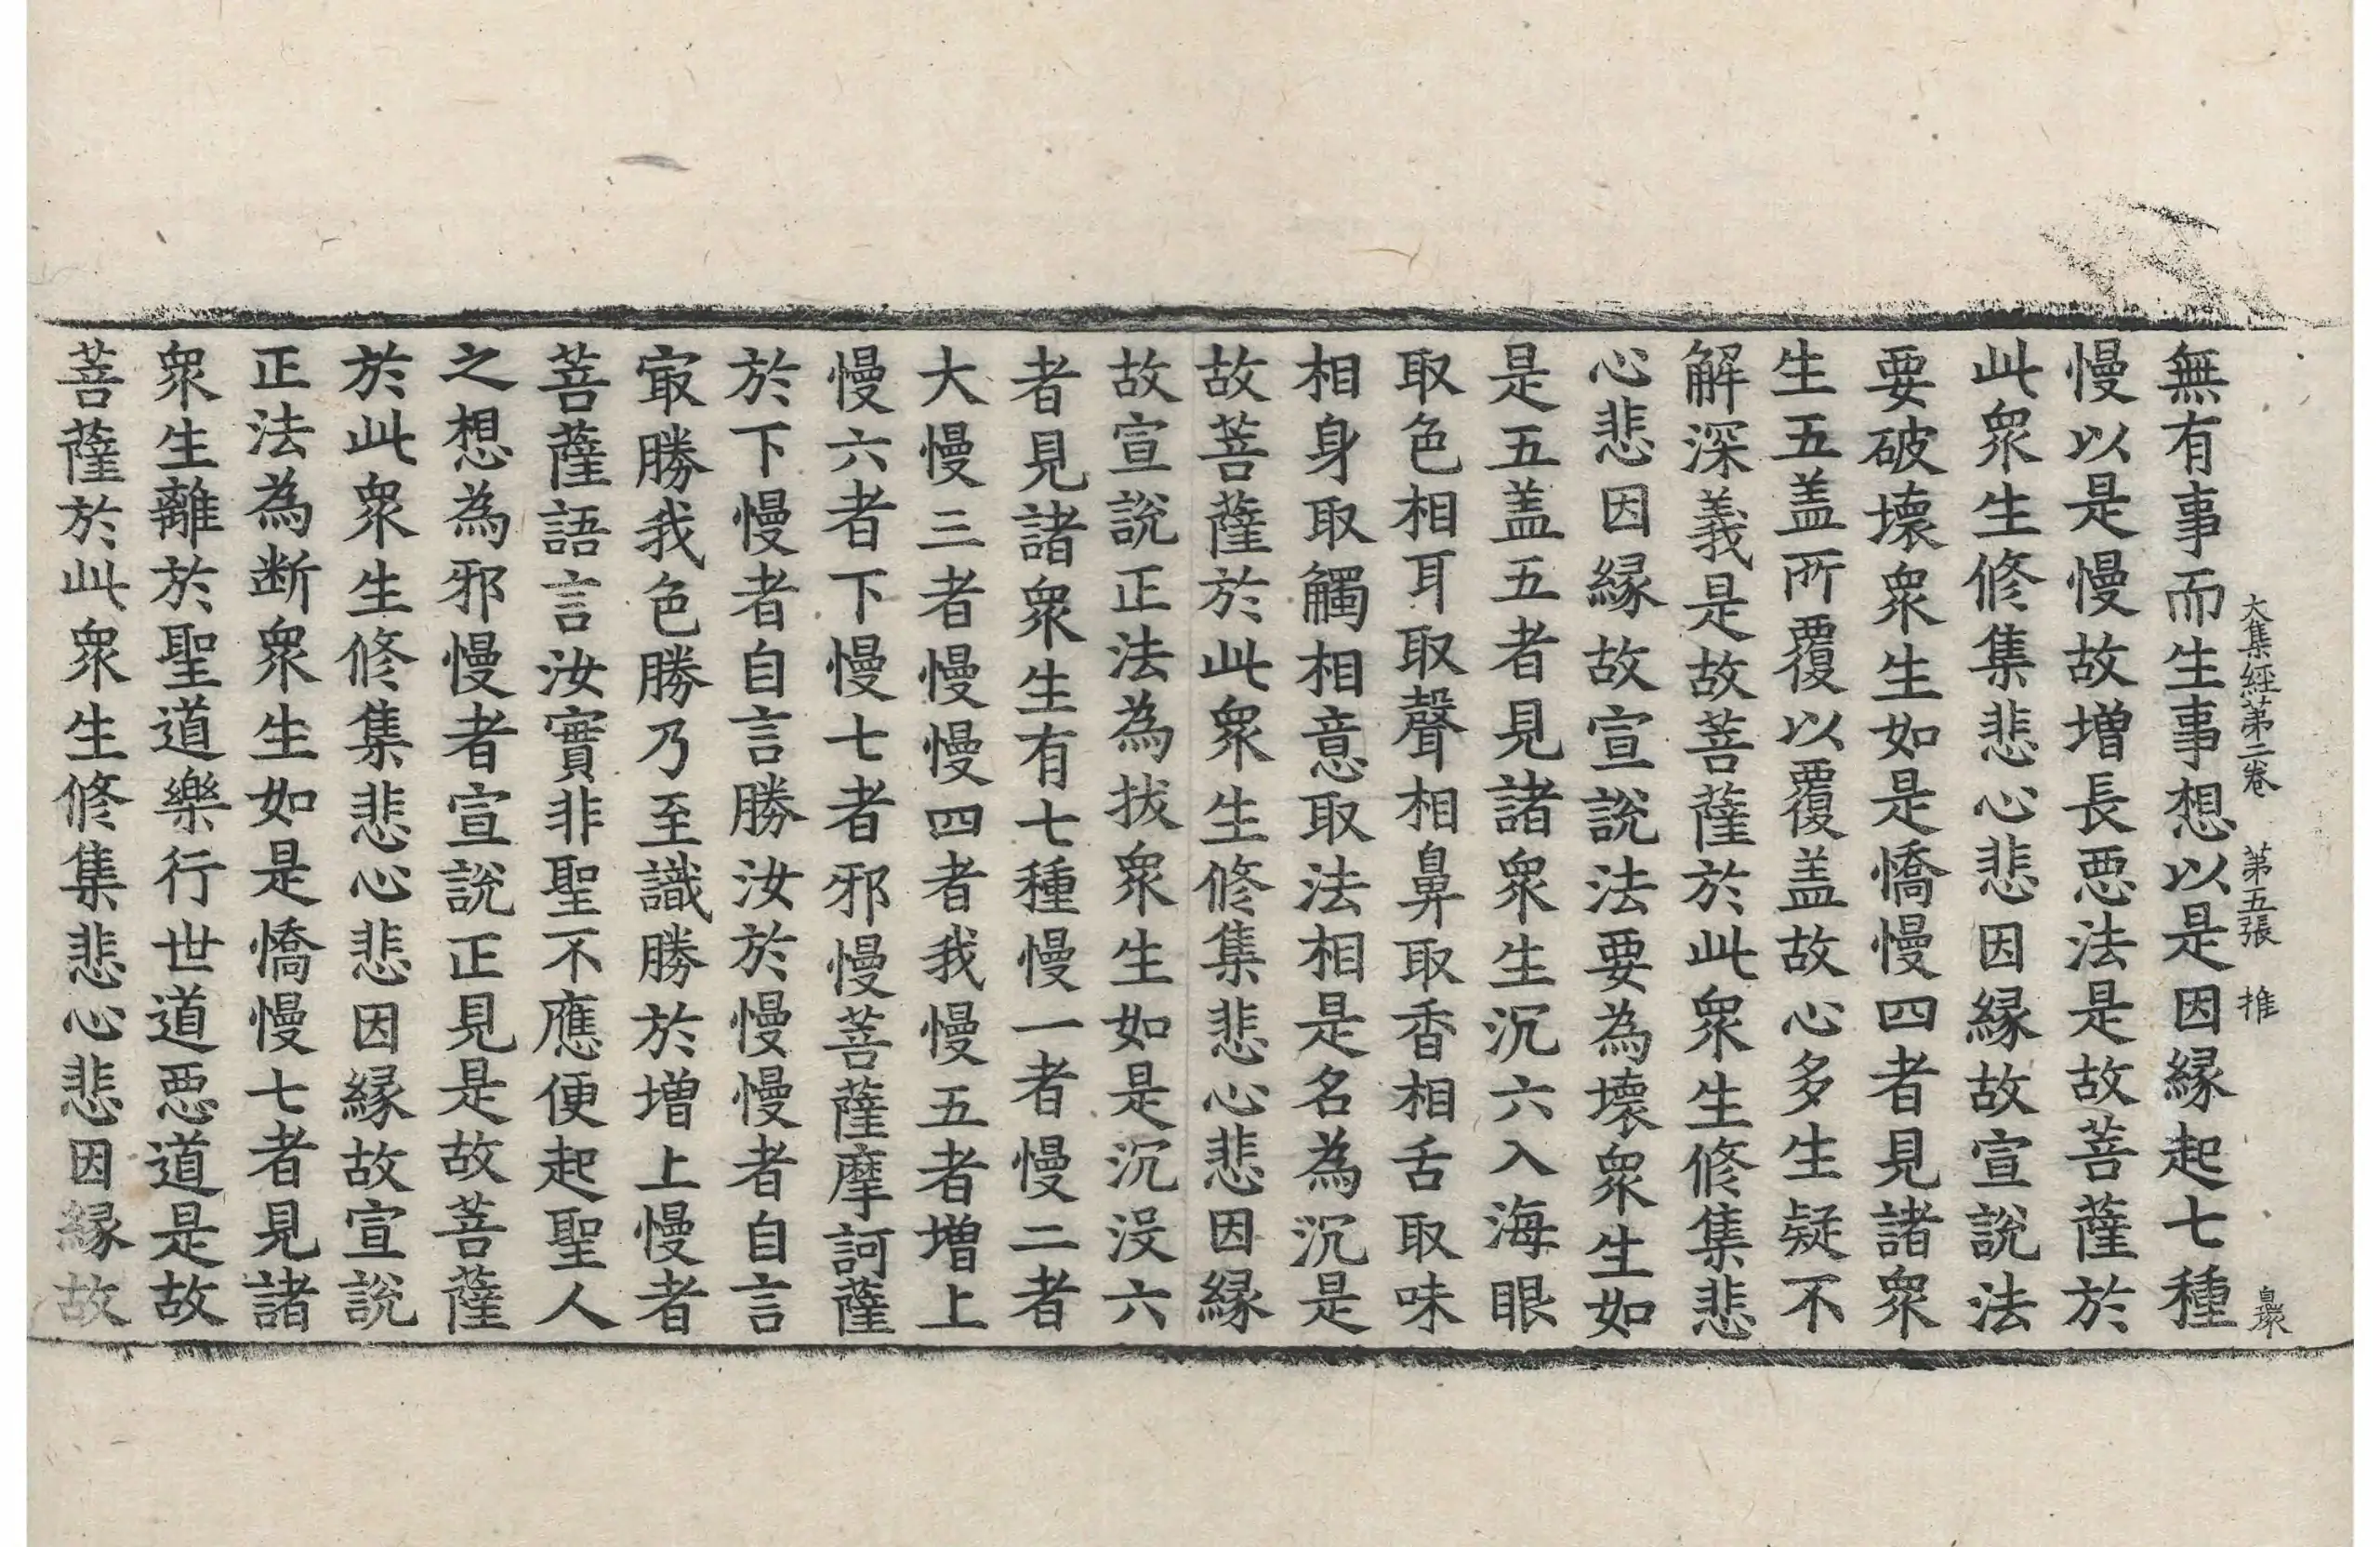 大集經第二卷　第五張　推
無有事而生事想以是因縁起七種
慢以是慢慢故増長悪法是故菩薩於
此衆生修集悲心悲因縁故宣說法
要破壞衆生如是憍慢四者見諸衆
生五盖所覆以覆盖故心多生疑不
解深義是故菩薩於此衆生修集悲
心悲因縁故宣說法要為壞衆生如
是五盖五者見諸衆生沉六入海眼
取色相耳取聲相鼻取香相舌取味
相身取觸相意取法相是名為沉是
故菩薩於此衆生修集悲心悲因縁
故宣說正法為拔衆生如是沉没六
者見諸衆生有七種慢一者慢二者
大慢三者慢慢四者我慢五者増上
慢六者下慢七者邪慢菩薩摩訶薩
於下慢者自言勝汝於慢慢者自言
冣勝我色勝乃至識勝於増上慢者
菩薩語言汝實非聖不應便起聖人
之想為邪慢者宣說正見是故菩薩
於此衆生修集悲心悲因縁故宣說
正法為断衆生如是憍慢七者見諸
衆生離於聖道樂行世道悪道是故
菩薩於此衆生修集悲心悲因縁故